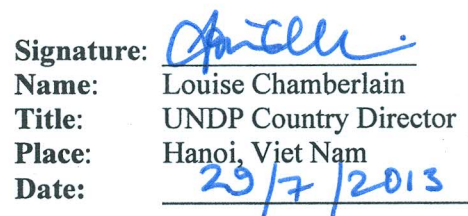 Signature:
Name: Louise Chamberlain
Title: UNDP Country Director
Place: Hanoi, Viet Nam
Date: 29/7/2013